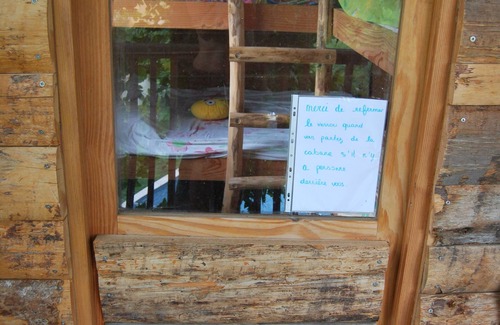 merci de refermer
le verrou quand
vous partez de la
cabane s'il n'y
a personne
derrière vous